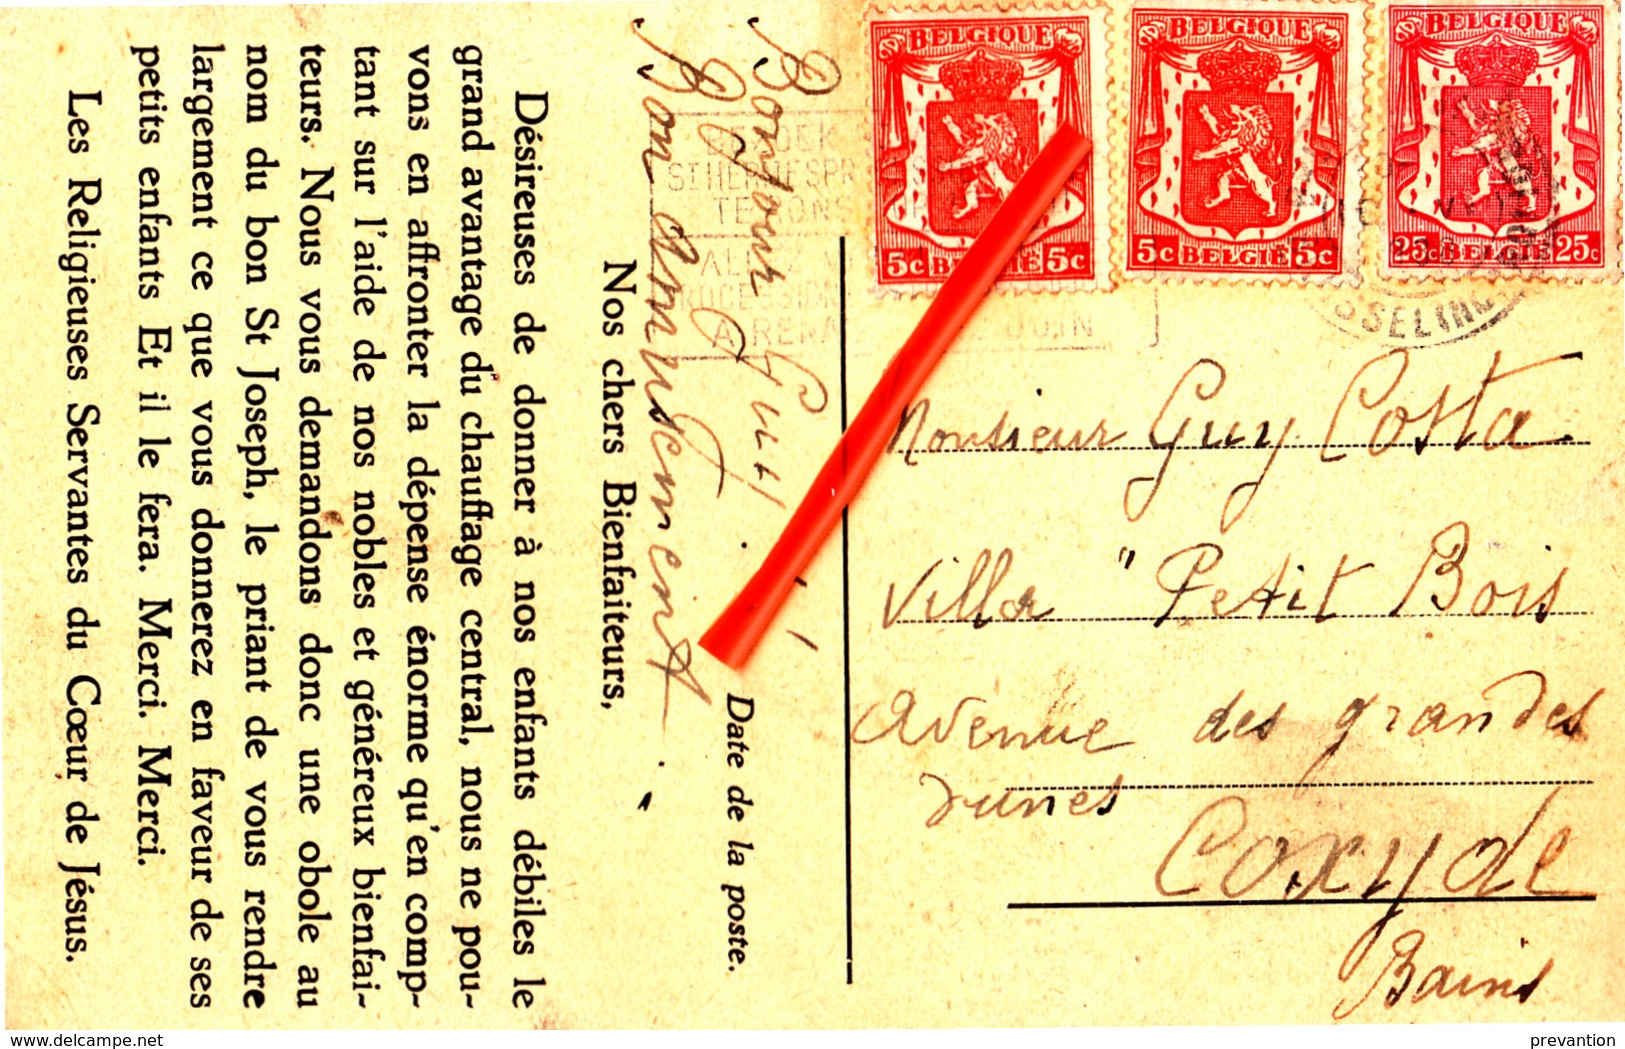 BELGIQUE
5c BELGIË 5c
BELGIQUE
5c BELGIË 5c
BELGIQUE
25c BELGIË 25c
Bonjour Guy!!
Bon amusement.
Date de la poste.
Nos chers Bienfaiteurs,
Désireuses de donner à nos enfants débiles le
grand avantage du chauffage central, nous ne pou-
vons en affronter la dépense énorme qu'en comp-
tant sur l'aide de nos nobles et généreux bienfai-
teurs. Nous vous demandons donc une obole au
nom du bon St Joseph, le priant de vous rendre
largement ce que vous donnerez en faveur de ses
petits enfants Et il le fera. Merci. Merci.
Les Religieuses Servantes du Cœur de Jésus.
Monsieur Guy Costa.
Villa "Petit Bois
Avenue des grandes
dunes
Coxyde
Bains
delcampe.net
prevantion